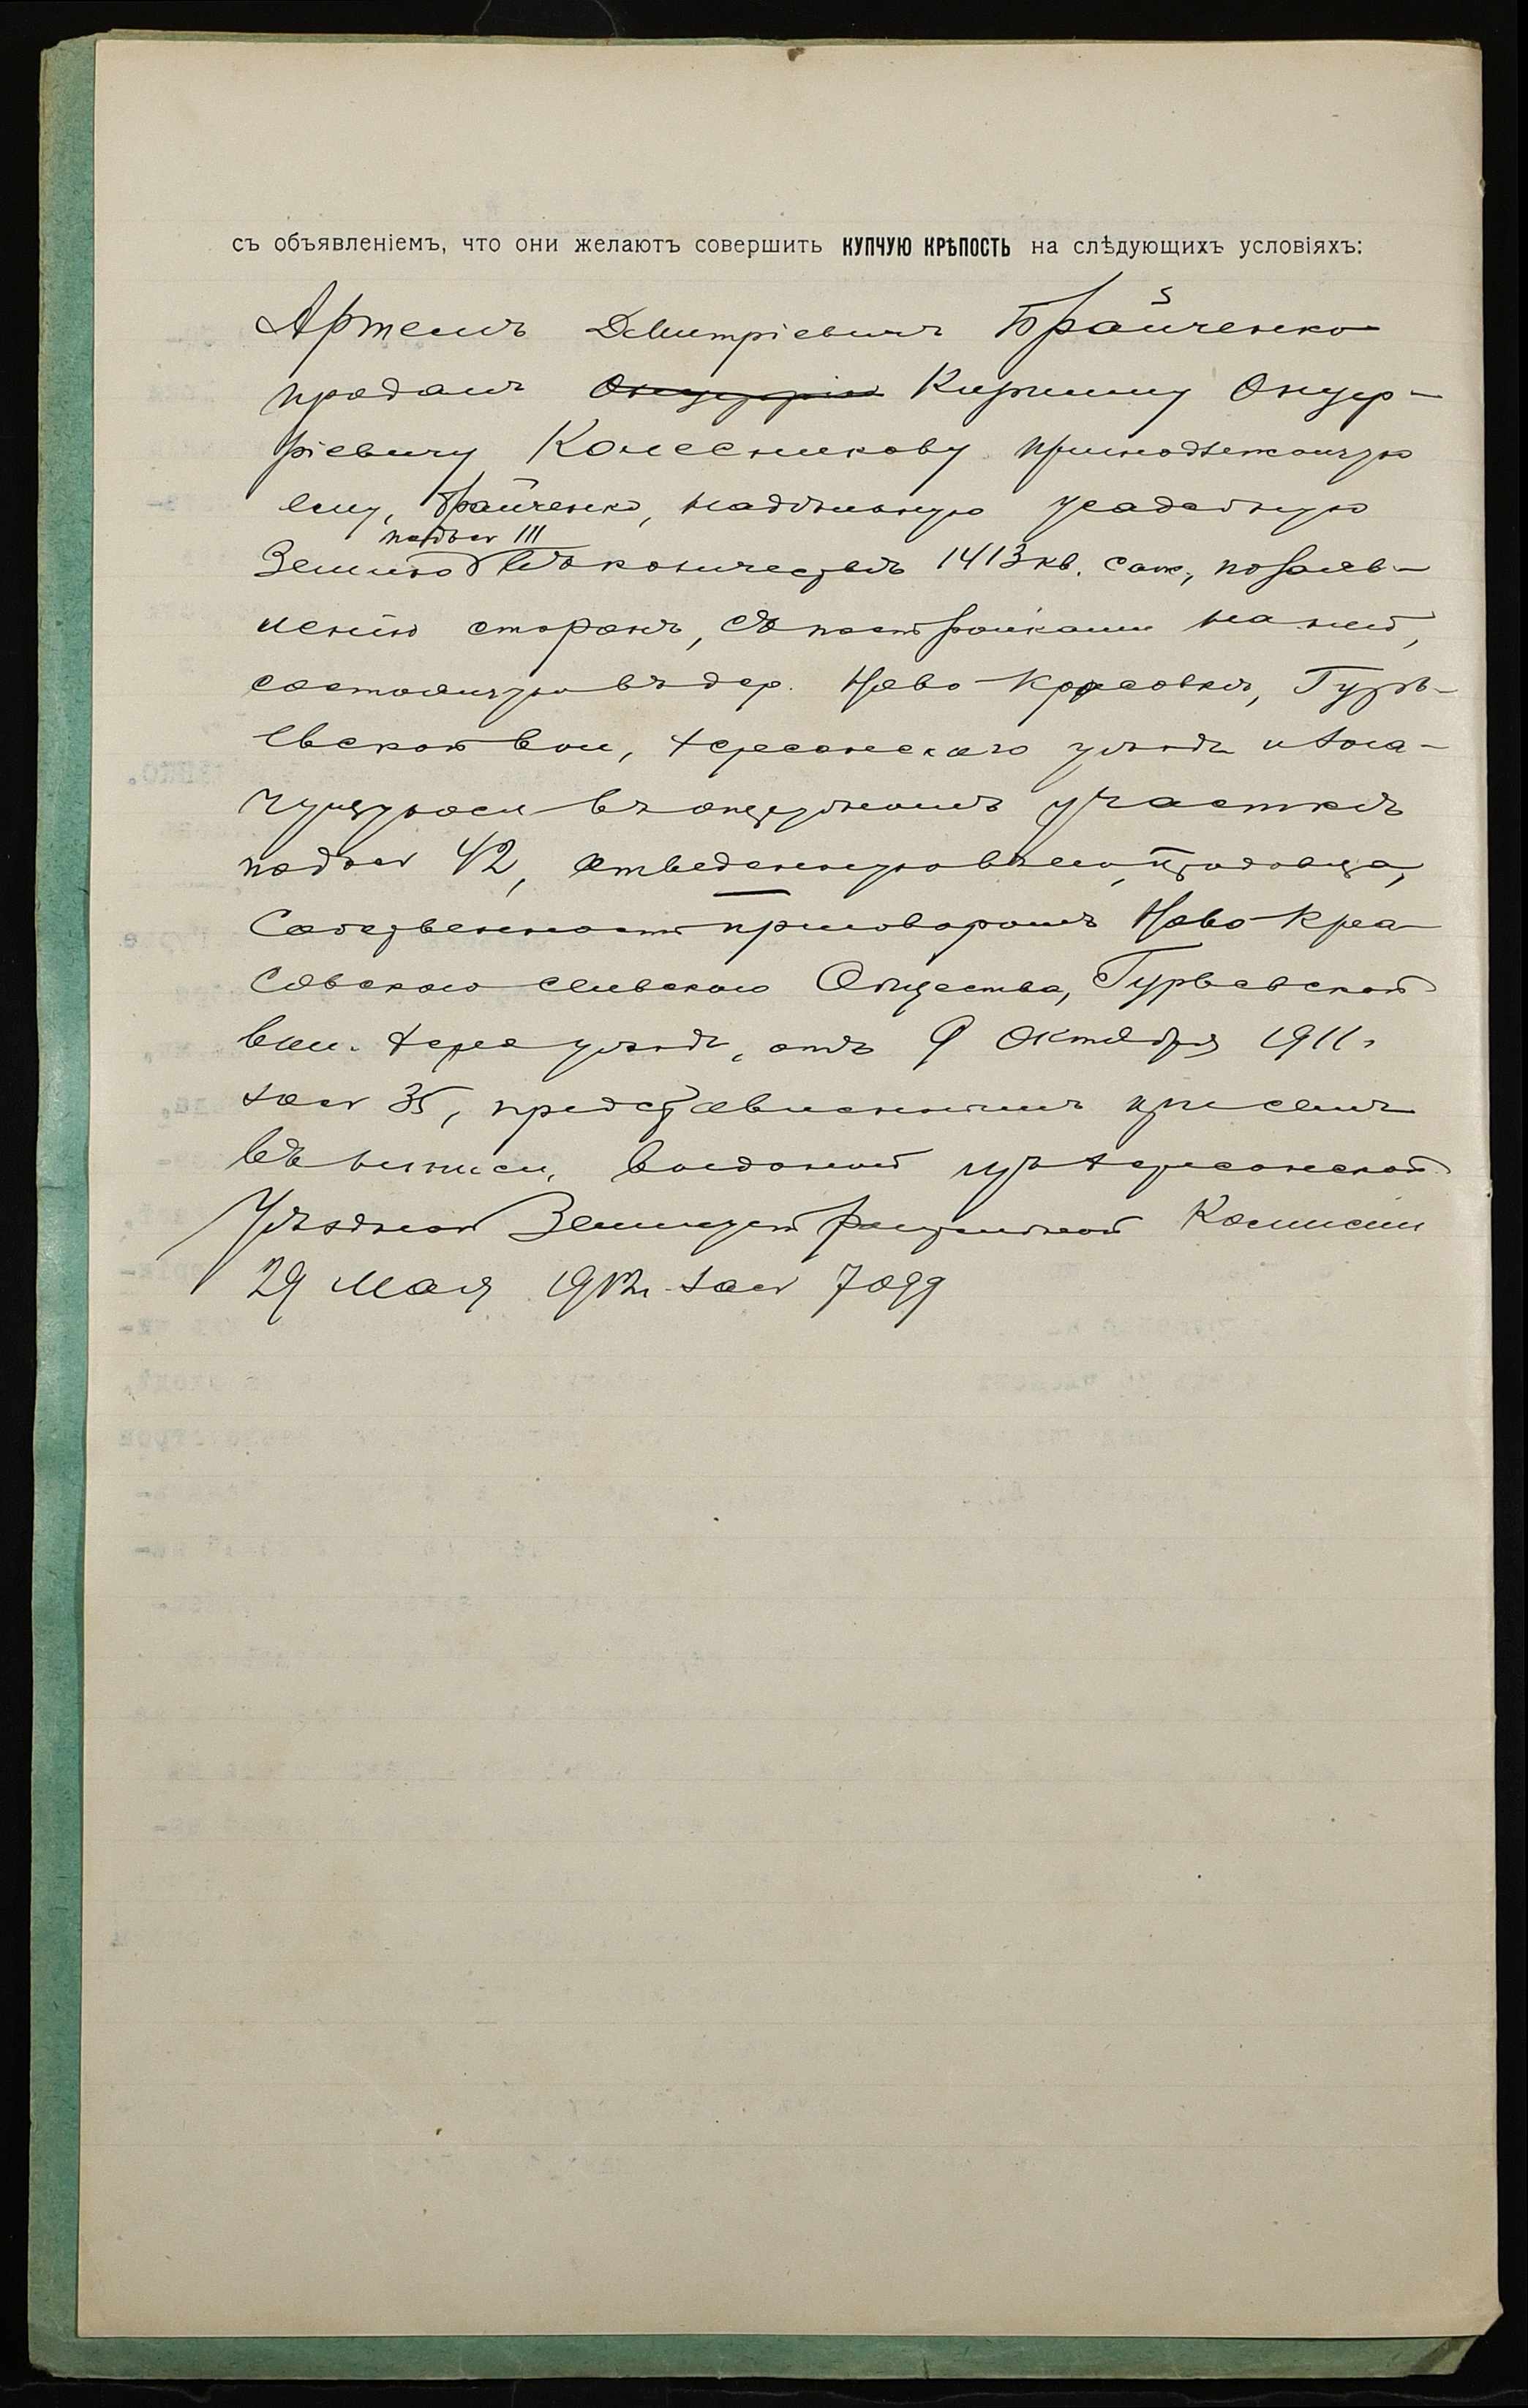 съ объявленіемъ, что они желаютъ совершить КУПЧУЮ КРѢПОСТЬ на слѣдующихъ условіяхъ:
Артемъ Дмитріевичъ Брайченко
продалъ Кириллу Онуф-
ріевичу Колесникову принадлежащую
ему, Брайченко, надѣльную усадебную
подъ № III
Землю въ количествѣ 1413 кв. саж., по заяв-
ленію сторонъ, съ постройками на ней,
состоящую въ дер. Ново-Красовкѣ, Гурь-
евской вол., Херсонскаго уѣзда и зна-
чущуюся въ отдѣльномъ участкѣ
подъ № 42, отведенную въ его, продавца,
Собственность приговоромъ Ново-Кра-
совскаго сельскаго Общества, Гурьевской
вол. Херс уѣзда, отъ 9 Октября 1911 г
за № 35, представленнымъ при семъ
въ выписи, выданной изъ Херсонской
Уѣздной Землеустроительной Комисіи
29 Мая 1912 г. за № 7099